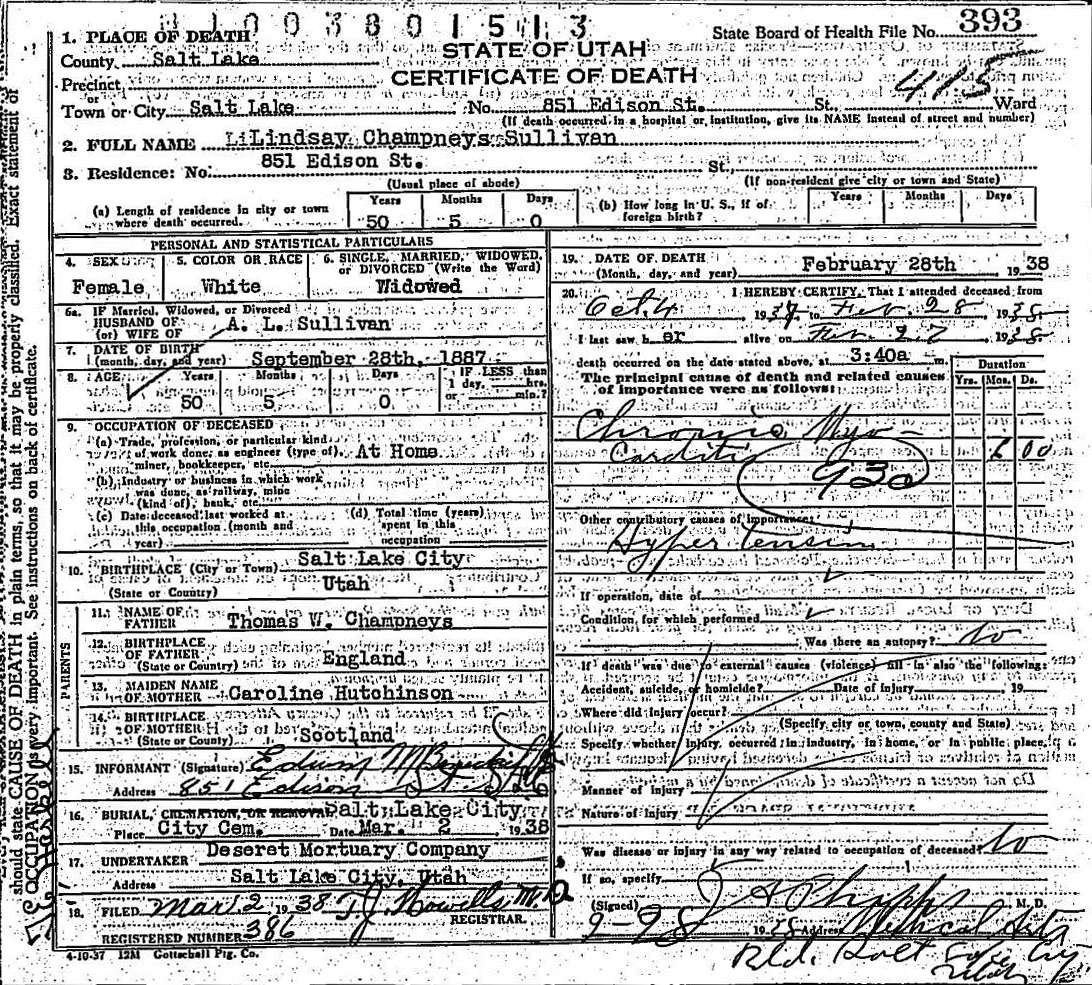 1003801513
1. PLACE OF DEATH
State Board of Health File No. 393
County Salt Lake
STATE OF UTAH
CERTIFICATE OF DEATH
Precinct
or
415
Town or City Salt Lake No. 851 Edison St. St. Ward
(If death occurred in a hospital or institution, give its NAME instead of street and number)
2. FULL NAME LiLindsay Champneys Sullivan
3. Residence: No. 851 Edison St. St.,
(Usual place of abode) (If non-resident give city or town and State)
(a) Length of residence in city or town where death occurred. Years 50 Months 5 Days 0
(b) How long in U. S., if of foreign birth? Years Months Days
PERSONAL AND STATISTICAL PARTICULARS
4. SEX Female
5. COLOR OR RACE White
6. SINGLE, MARRIED, WIDOWED, or DIVORCED (Write the Word) Widowed
6a. IF Married, Widowed, or Divorced
HUSBAND OF
(or) WIFE OF A. L. Sullivan
7. DATE OF BIRTH
(month, day, and year) September 28th, 1887
8. AGE Years 50 Months 5 Days 0 IF LESS than 1 day, hrs. or min.?
9. OCCUPATION OF DECEASED
(a) Trade, profession, or particular kind
of work done, as engineer (type of), At Home
miner, bookkeeper, etc.
(b) Industry or business in which work
was done, as railway, mine
(kind of), bank, etc.
(c) Date deceased last worked at this occupation (month and year)
(d) Total time (years) spent in this occupation
10. BIRTHPLACE (City or Town) Salt Lake City
(State or Country) Utah
PARENTS
11. NAME OF FATHER Thomas W. Champneys
12. BIRTHPLACE OF FATHER (State or Country) England
13. MAIDEN NAME OF MOTHER Caroline Hutchinson
14. BIRTHPLACE OF MOTHER (State or Country) Scotland
15. INFORMANT (Signature)
Address 851 Edison St
16. BURIAL, CREMATION, OR REMOVAL Salt Lake City,
Place City Cem. Date Mar. 2 1938
17. UNDERTAKER Deseret Mortuary Company
Address Salt Lake City, Utah
18. FILED Mar 2 1938 T. J. Howells, M.D.
REGISTRAR.
REGISTERED NUMBER 386
4-10-37 12M Gottschall Ptg. Co.
19. DATE OF DEATH
(Month, day, and year) February 28th 1938
20. I HEREBY CERTIFY, That I attended deceased from
Oct. 4 1937 to Feb. 28 1938.
I last saw her alive on Feb. 27 1938
death occurred on the date stated above, at 3:40a m.
The principal cause of death and related causes of importance were as follows:
Duration
Yrs. Mos. Ds.
Chronic Myo-
Carditis 6 00
93a
Other contributory causes of importance:
Hypertension
If operation, date of
Condition for which performed
Was there an autopsy? No
If death was due to external causes (violence) fill in also the following:
Accident, suicide, or homicide? Date of injury 19
Where did injury occur?
(Specify city or town, county and State)
Specify whether injury occurred in industry, in home, or in public place,
Manner of injury
Nature of injury
Was disease or injury in any way related to occupation of deceased? No
If so, specify
(Signed) J A Phipps M. D.
2-28 1938 Address Medical Arts
Bld. Salt Lake Cy
Utah
should state CAUSE OF DEATH in plain terms, so that it may be properly classified. Exact statement of
OCCUPATION is very important. See instructions on back of certificate.